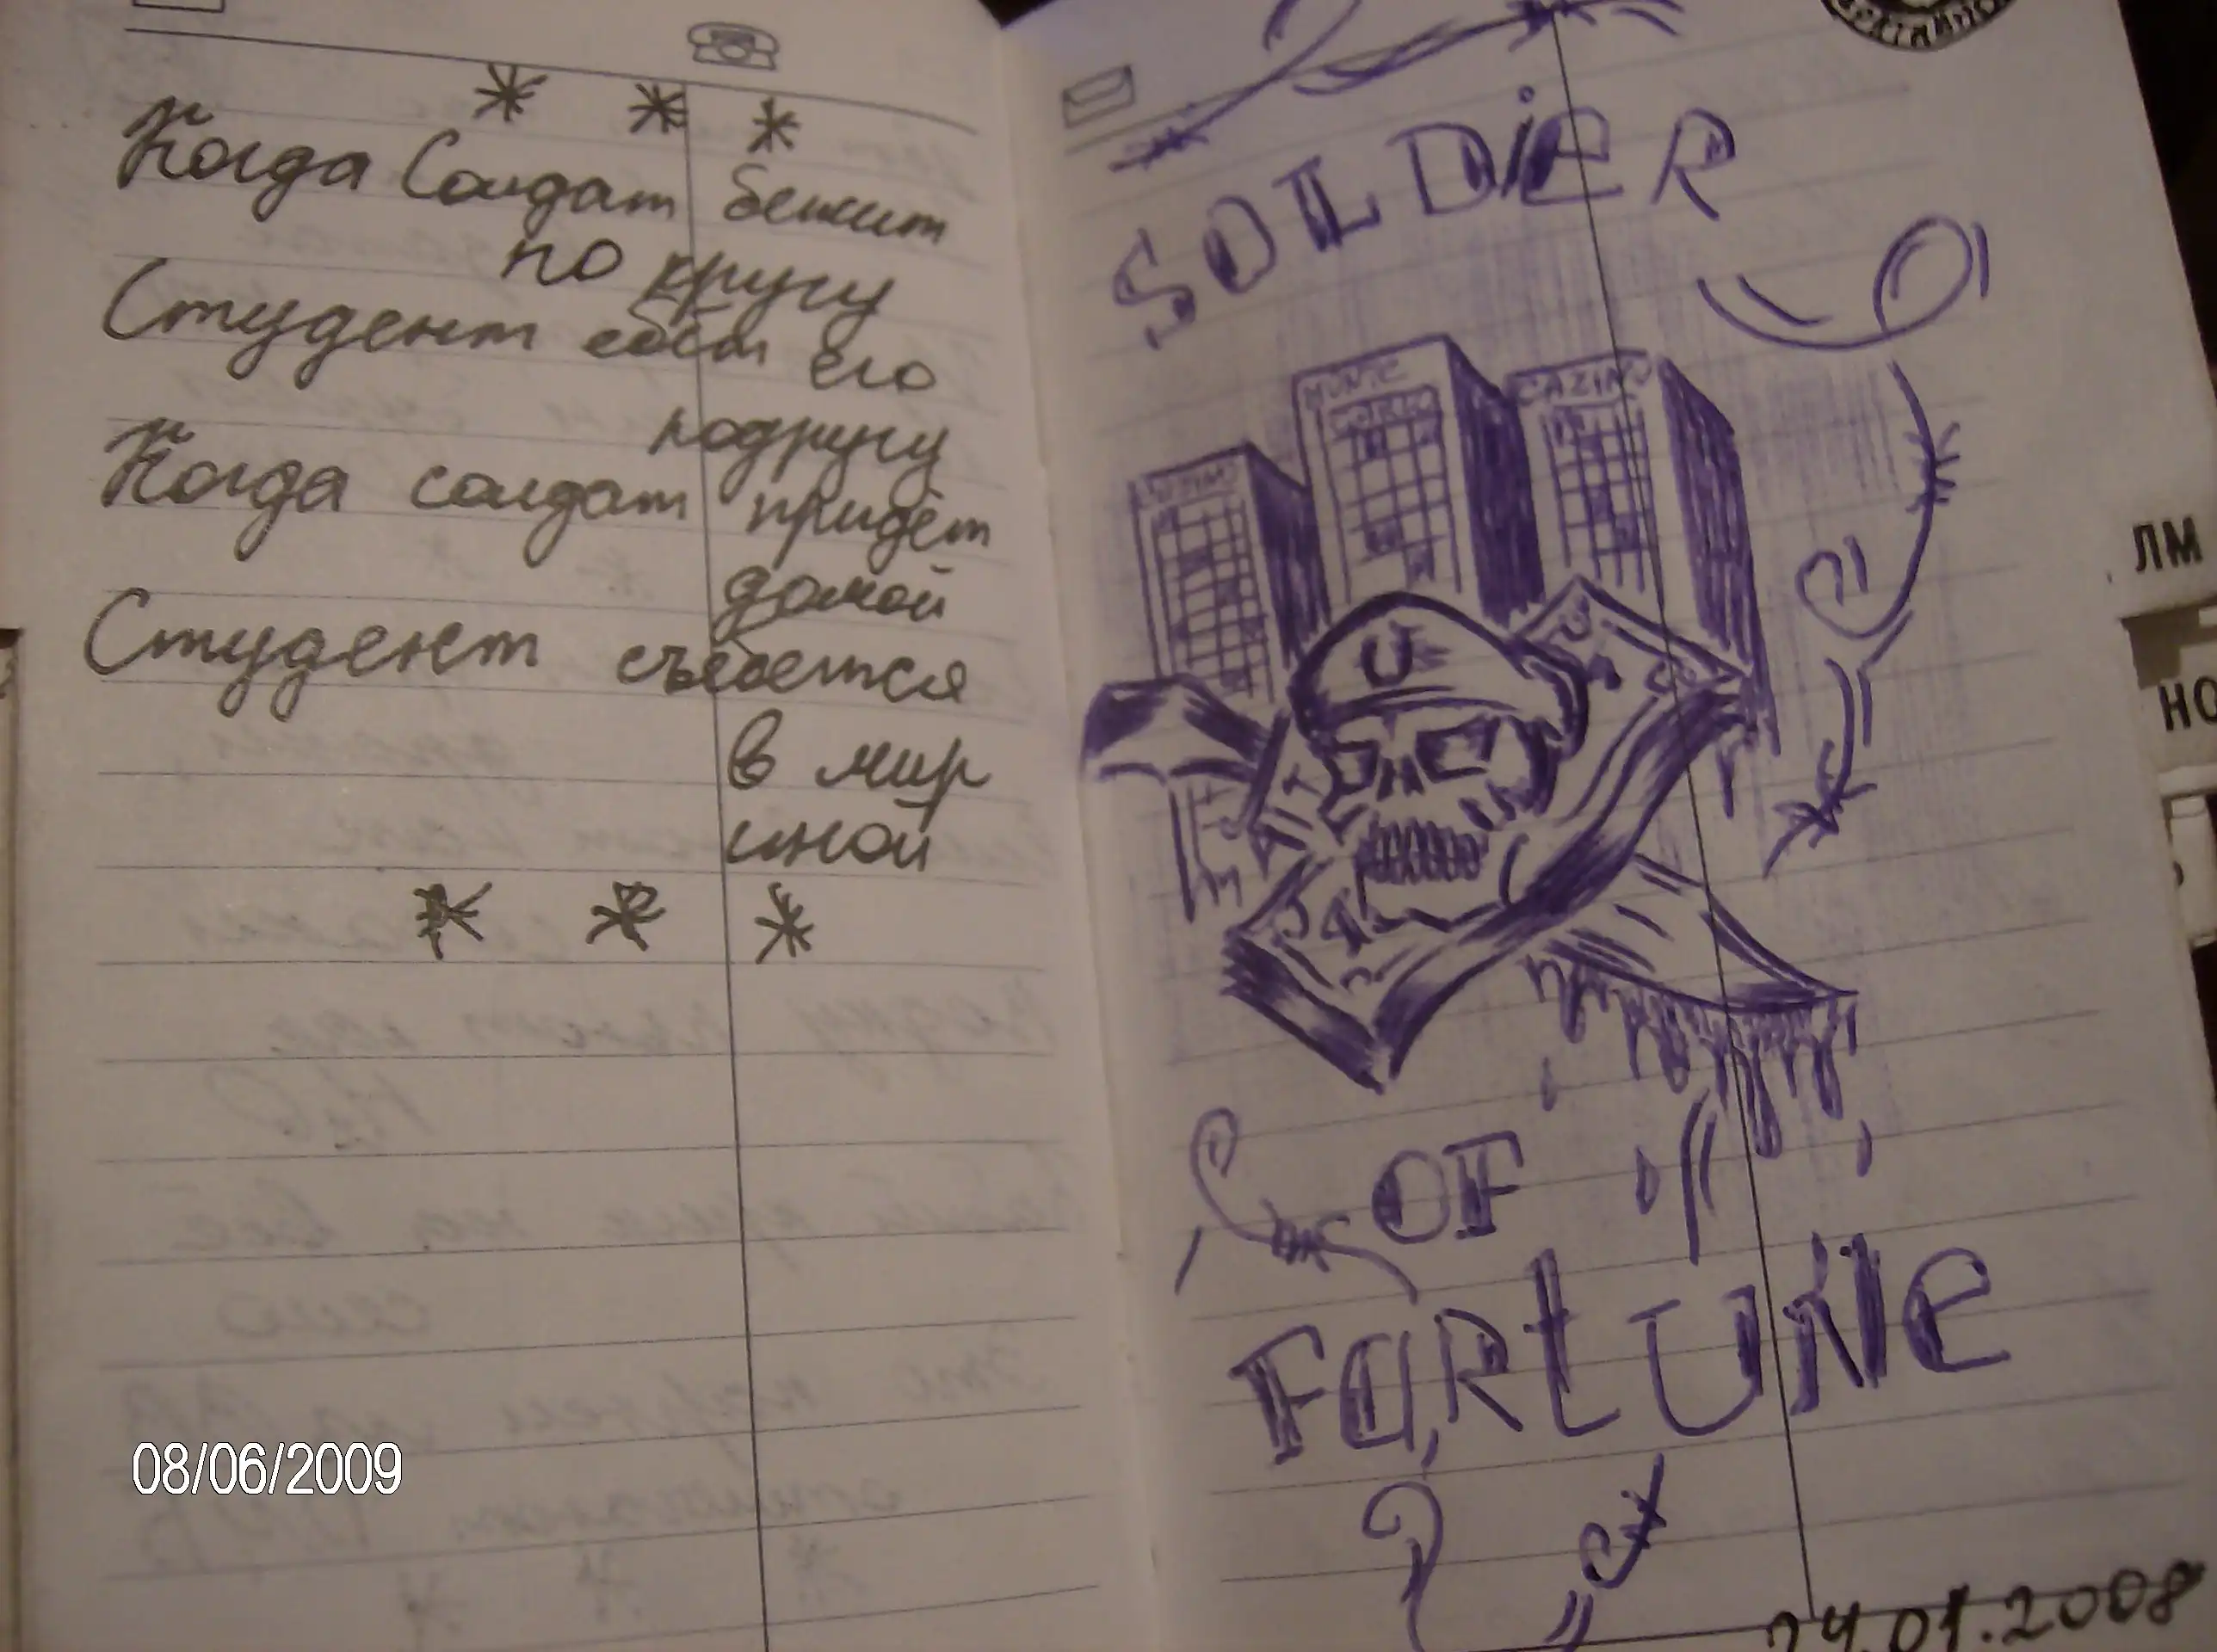 * * *
Когда Солдат бежит
по кругу
Студент ебёт его
подругу
Когда солдат придёт
домой
Студент съебется
в мир
иной
* * *
08/06/2009
SOLDiER
MONTE
CAZINO
U
OF
FORtUNe
24.01.2008
ЛМ
НО